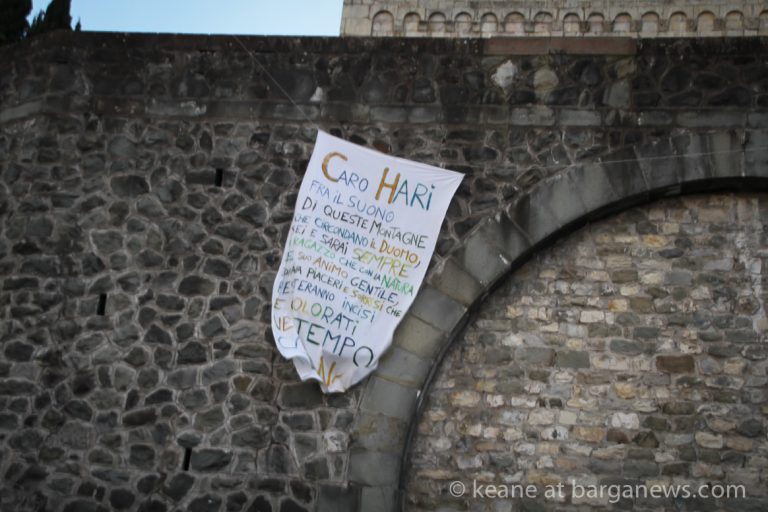 CARO HARI
FRA IL SUONO
DI QUESTE MONTAGNE
CHE CIRCONDANO IL DUOMO,
SEI E SARAI SEMPRE
RAGAZZO CHE CON LA NATURA
SUO ANIMO GENTILE,
PIACERI E SORRISI CHE
RESTERANNO INCISI
E COLORATI
TEMPO
© keane at barganews.com